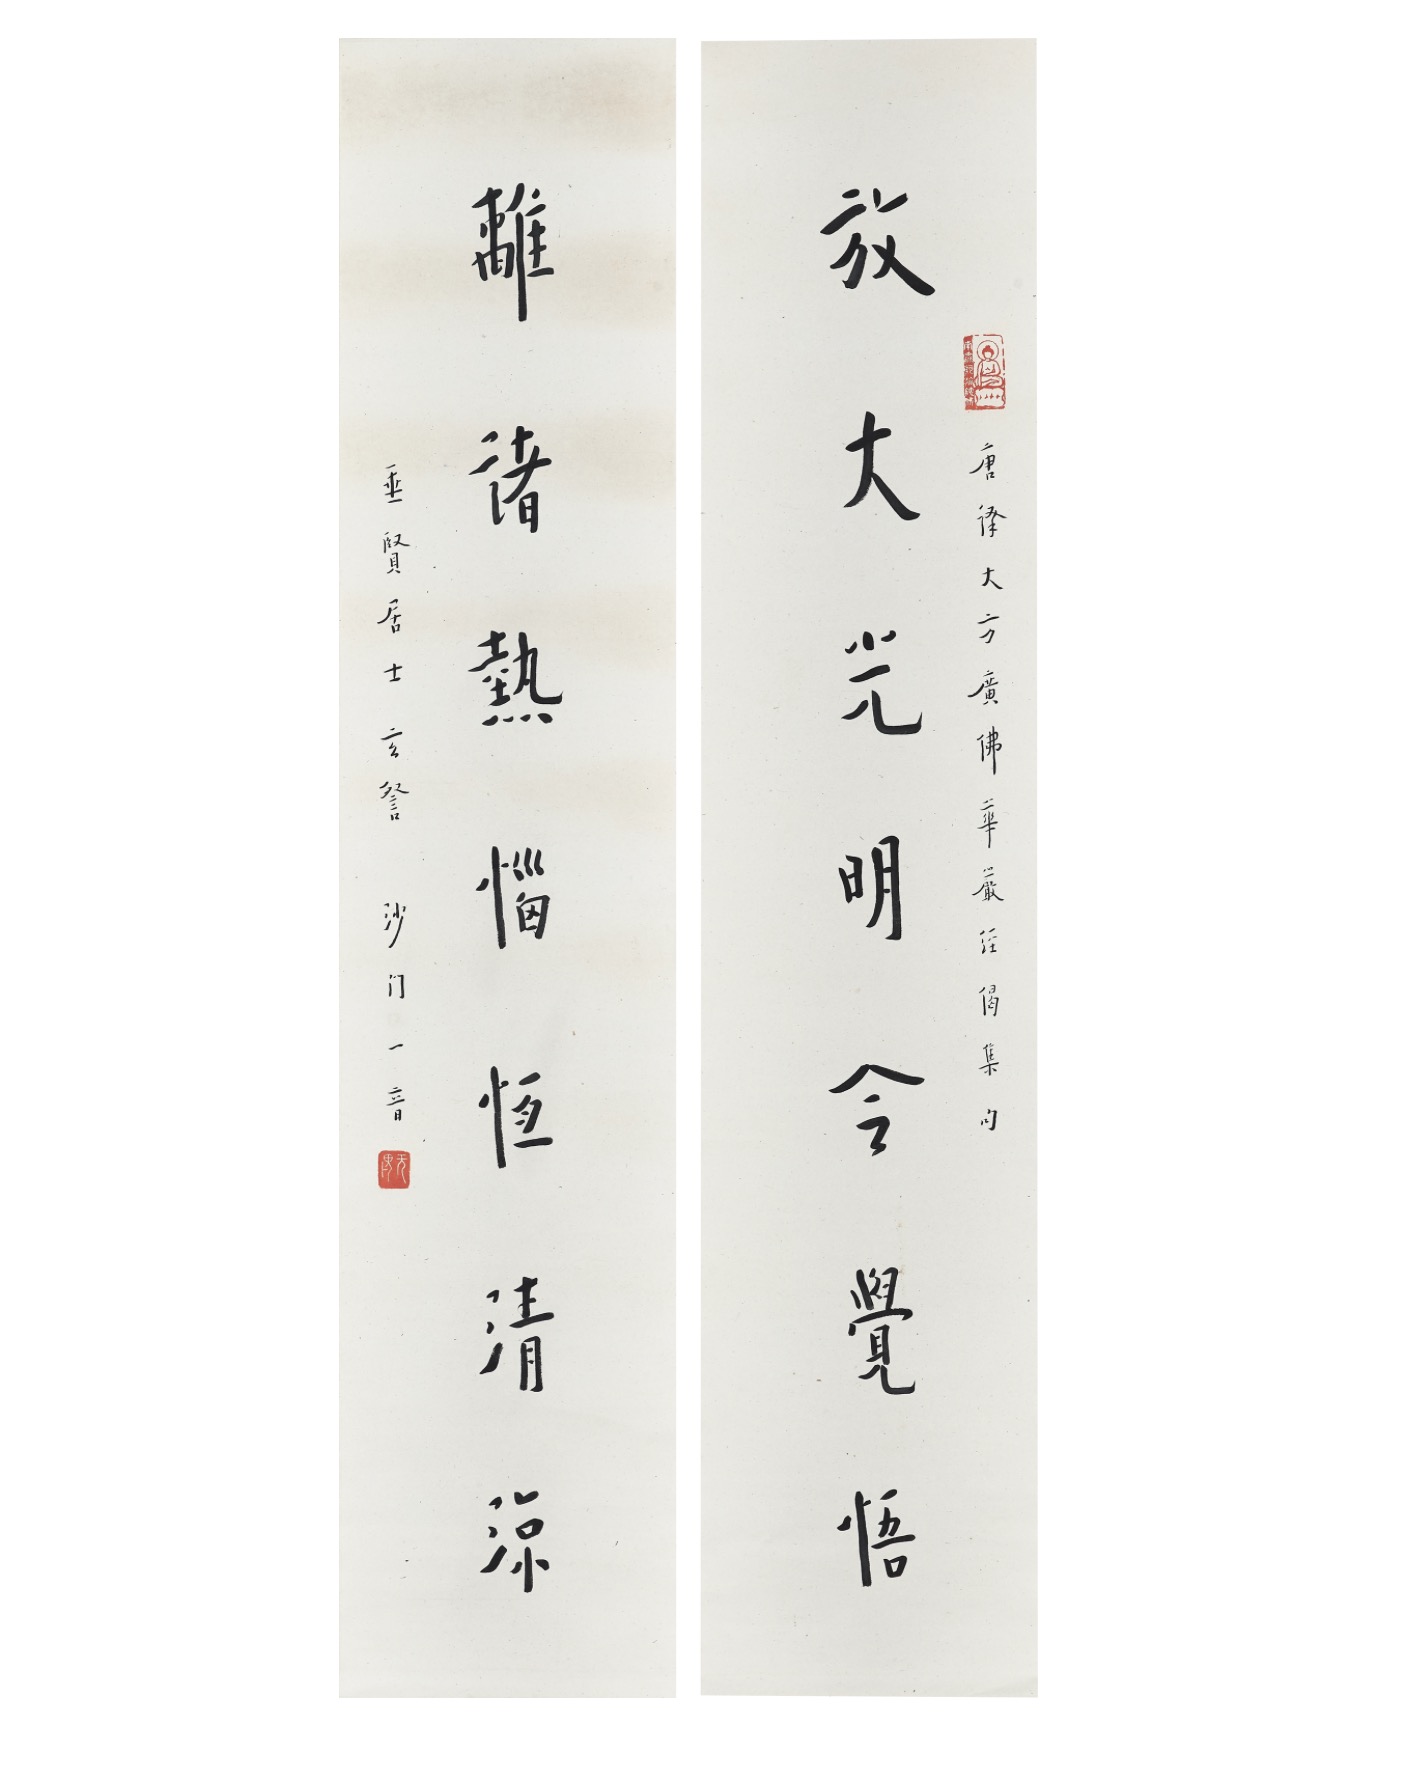 放大光明令覺悟
唐譯大方廣佛華嚴經偈集句
離諸熱惱恆清涼
賢居士玄詧 沙門一音